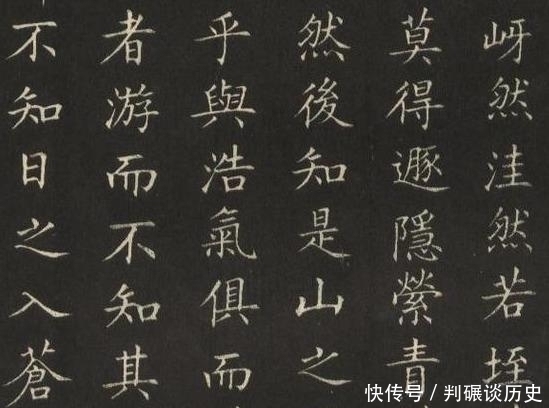 岈然洼然若垤
莫得遯隱縈青
然後知是山之
乎與浩氣俱而
者游而不知其
不知日之入蒼
快传号 / 判碾谈历史